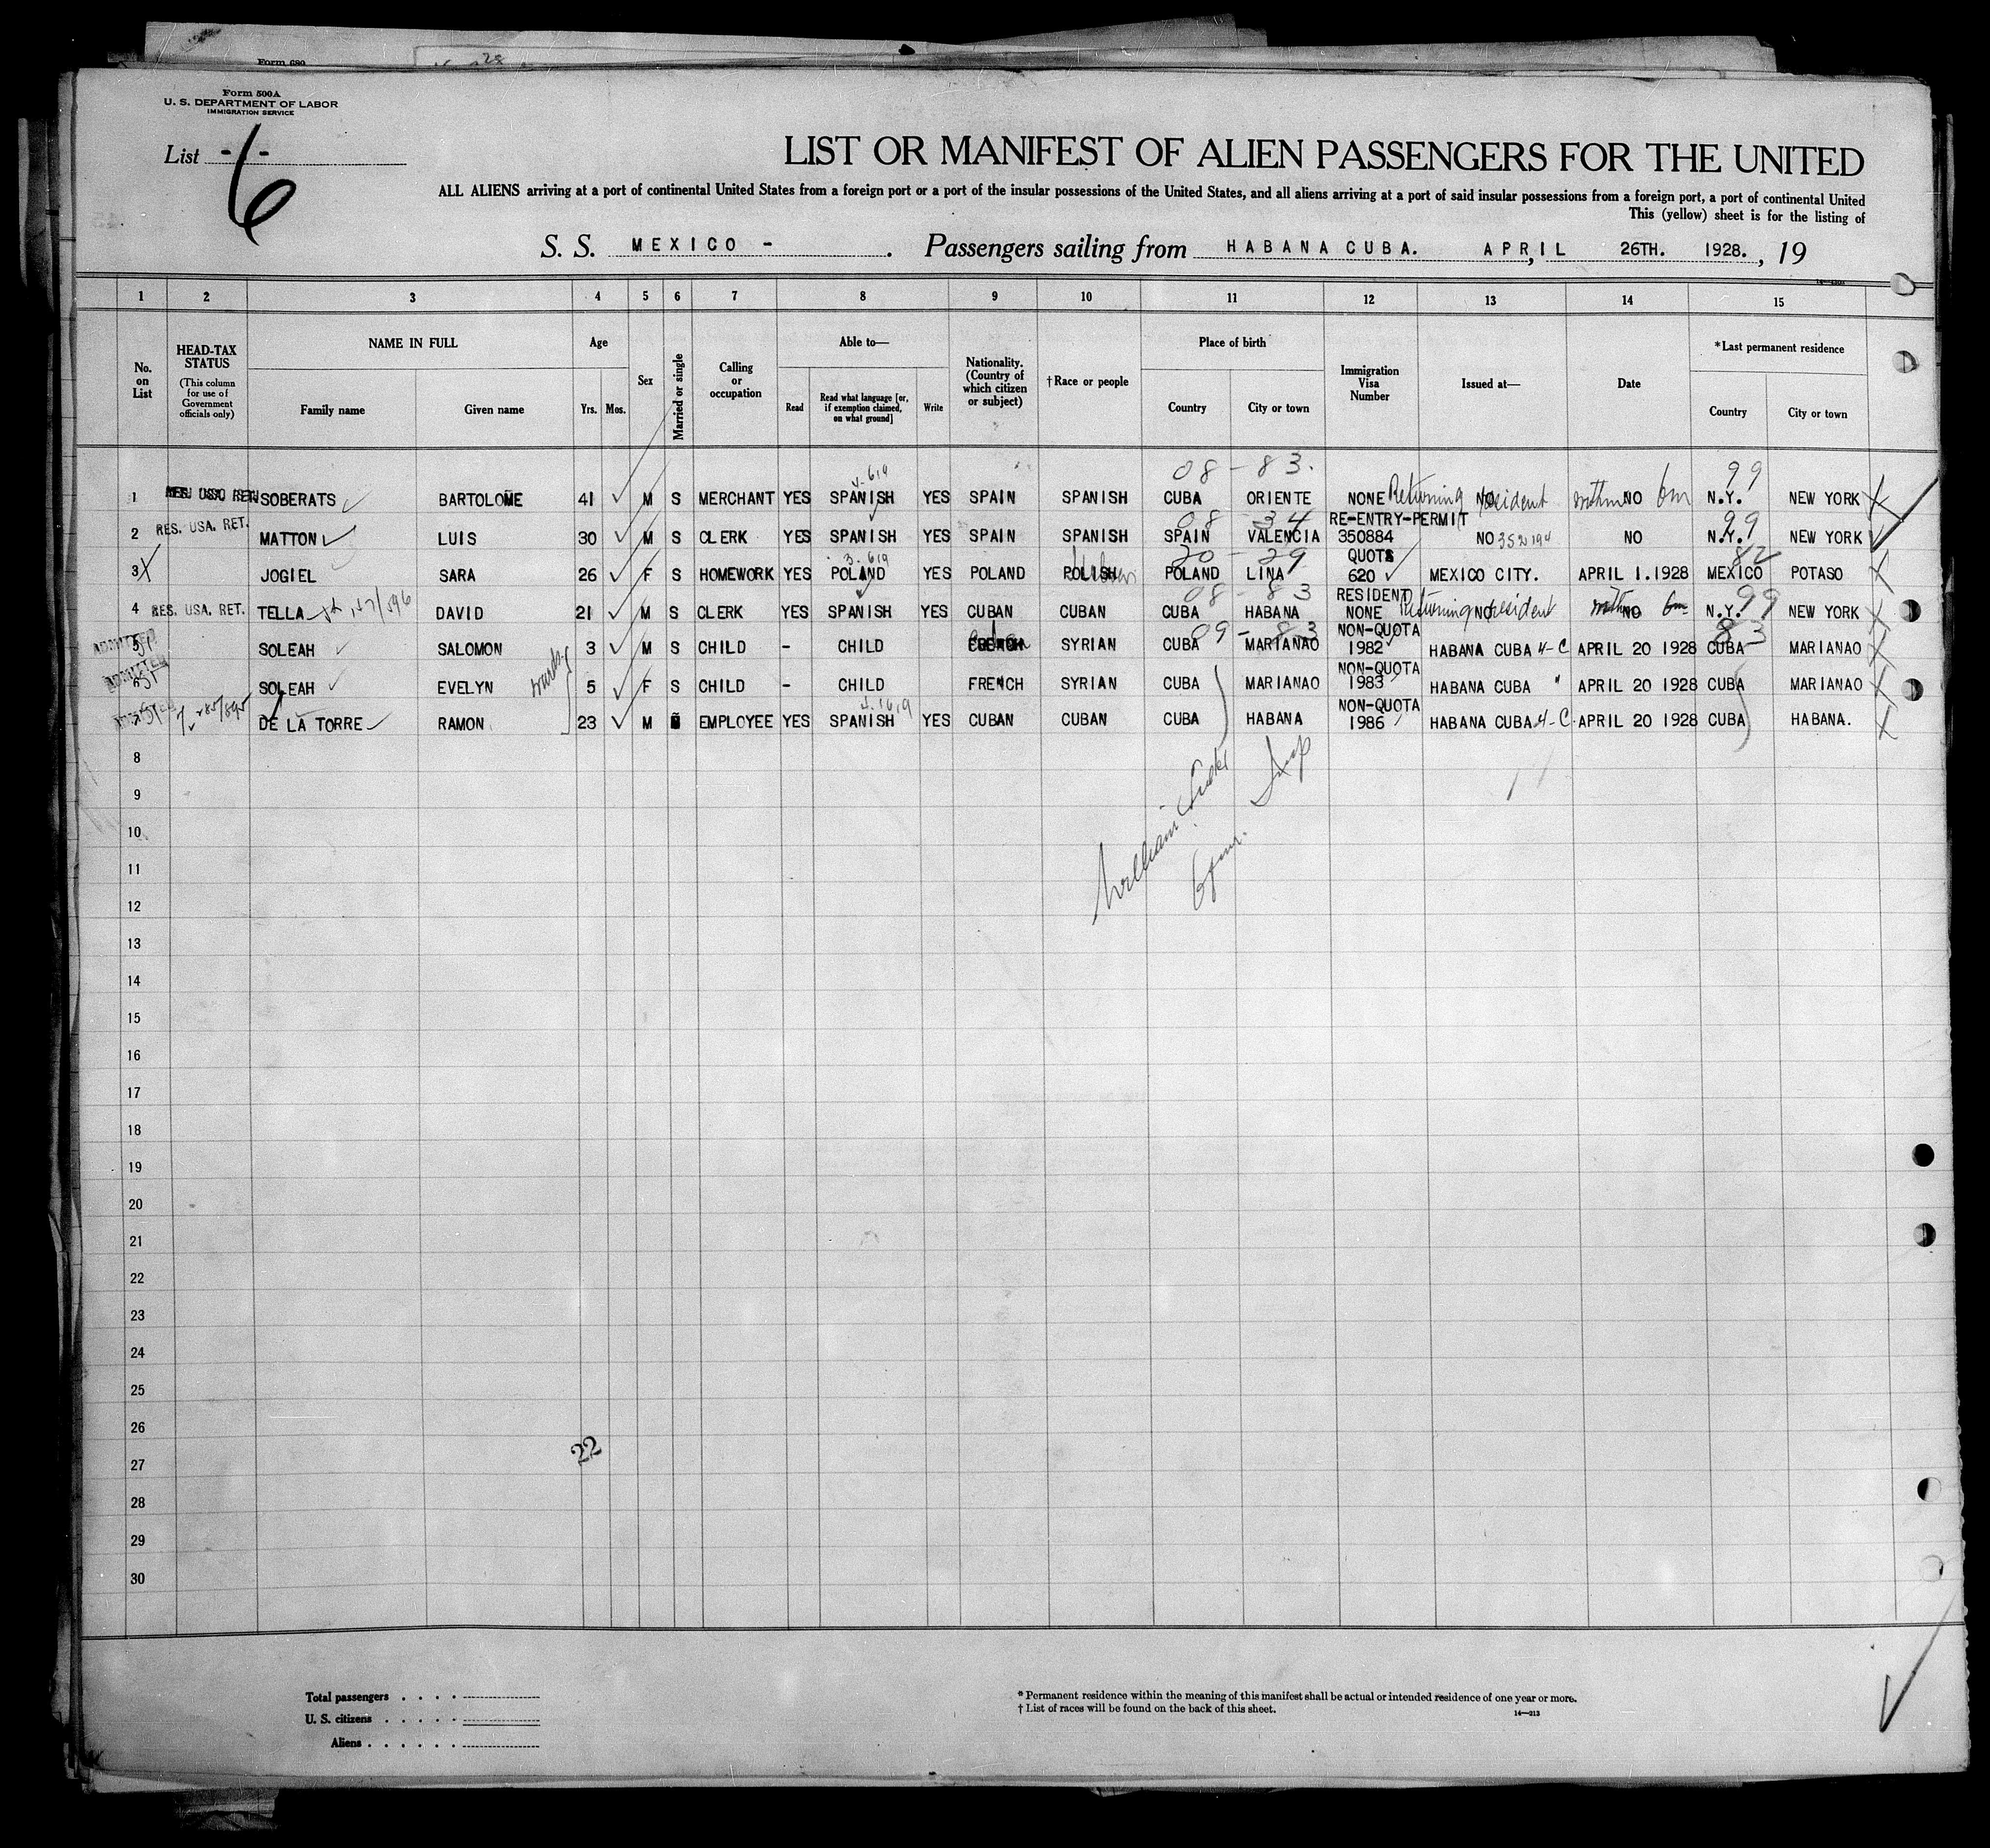 Form 680
28
Form 500A
U. S. DEPARTMENT OF LABOR
IMMIGRATION SERVICE
List - 6 -
LIST OR MANIFEST OF ALIEN PASSENGERS FOR THE UNITED
ALL ALIENS arriving at a port of continental United States from a foreign port or a port of the insular possessions of the United States, and all aliens arriving at a port of said insular possessions from a foreign port, a port of continental United
This (yellow) sheet is for the listing of
S. S. MEXICO - . Passengers sailing from HABANA CUBA. APRIL, 26TH. 1928. , 19
1 2 3 4 5 6 7 8 9 10 11 12 13 14 15
No. on List
HEAD-TAX STATUS
(This column for use of Government officials only)
NAME IN FULL
Family name Given name
Age
Yrs. Mos.
Sex
Married or single
Calling or occupation
Able to—
Read
Read what language [or, if exemption claimed, on what ground]
Write
Nationality. (Country of which citizen or subject)
† Race or people
Place of birth
Country City or town
Immigration Visa Number
Issued at—
Date
* Last permanent residence
Country City or town
08 - 83. 99
1 SOBERATS BARTOLOME 41 M S MERCHANT YES SPANISH YES SPAIN SPANISH CUBA ORIENTE NONE Returning NO resident within NO 6m N.Y. NEW YORK
08 - 34 RE-ENTRY-PERMIT 99
2 RES. USA. RET. MATTON LUIS 30 M S CLERK YES SPANISH YES SPAIN SPANISH SPAIN VALENCIA 350884 NO NO N.Y. NEW YORK
20 - 29 QUOTS 82
3 JOGIEL SARA 26 F S HOMEWORK YES POLAND YES POLAND POLISH Hebrew POLAND LINA 620 MEXICO CITY. APRIL 1.1928 MEXICO POTASO
08 - 83 RESIDENT 99
4 RES. USA. RET. TELLA DAVID 21 M S CLERK YES SPANISH YES CUBAN CUBAN CUBA HABANA NONE Returning NO resident within NO 6m N.Y. NEW YORK
09 - 83 NON-QUOTA 83
ADMITTED SOLEAH SALOMON 3 M S CHILD - CHILD FRENCH Cuban SYRIAN CUBA MARIANAO 1982 HABANA CUBA 4-C APRIL 20 1928 CUBA MARIANAO
NON-QUOTA
ADMITTED SOLEAH EVELYN 5 F S CHILD - CHILD FRENCH SYRIAN CUBA MARIANAO 1983 HABANA CUBA " APRIL 20 1928 CUBA MARIANAO
NON-QUOTA
ADMITTED DE LA TORRE RAMON 23 M EMPLOYEE YES SPANISH YES CUBAN CUBAN CUBA HABANA 1986 HABANA CUBA 4-C. APRIL 20 1928 CUBA HABANA.
8
9
10
William
Insp
11
12
13
14
15
16
17
18
19
20
21
22
23
24
25
26
22
27
28
29
30
Total passengers . . . .
U. S. citizens . . . . .
Aliens . . . . . .
* Permanent residence within the meaning of this manifest shall be actual or intended residence of one year or more.
† List of races will be found on the back of this sheet.
14—213